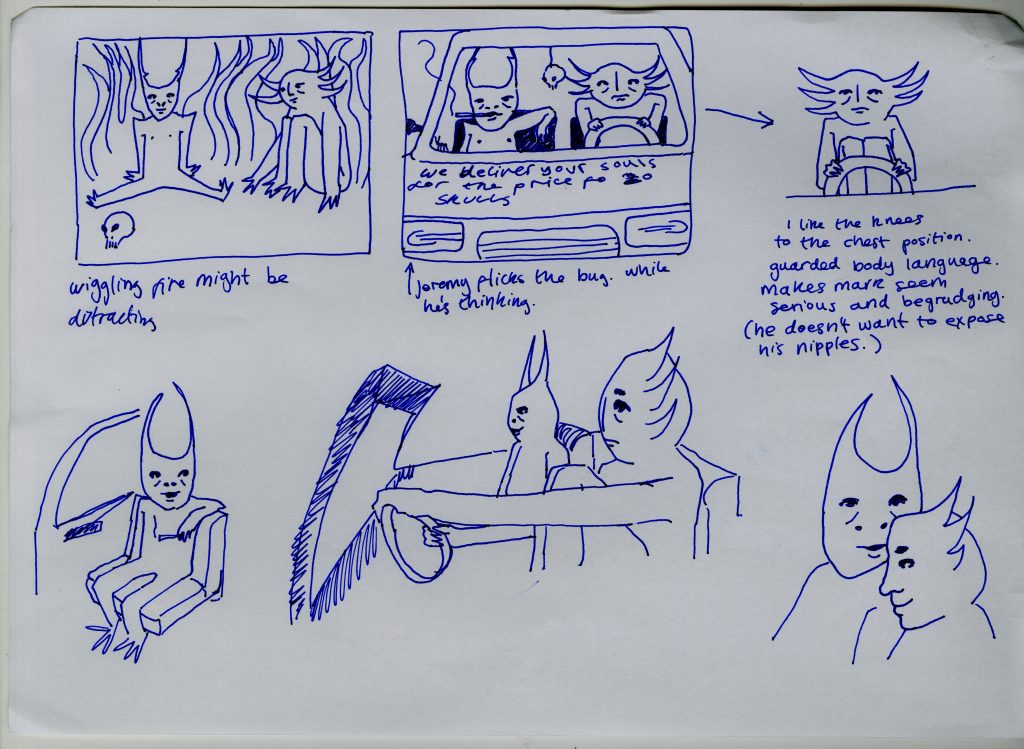 we deliver your souls
for the price fo 20
skulls
wiggling fire might be
ditracting
Jeromy flicks the bug. while
he's thinking.
I like the knees
to the chest position.
guarded body language.
makes mark seem
serious and begrudging.
(he doesn't want to expose
his nipples.)